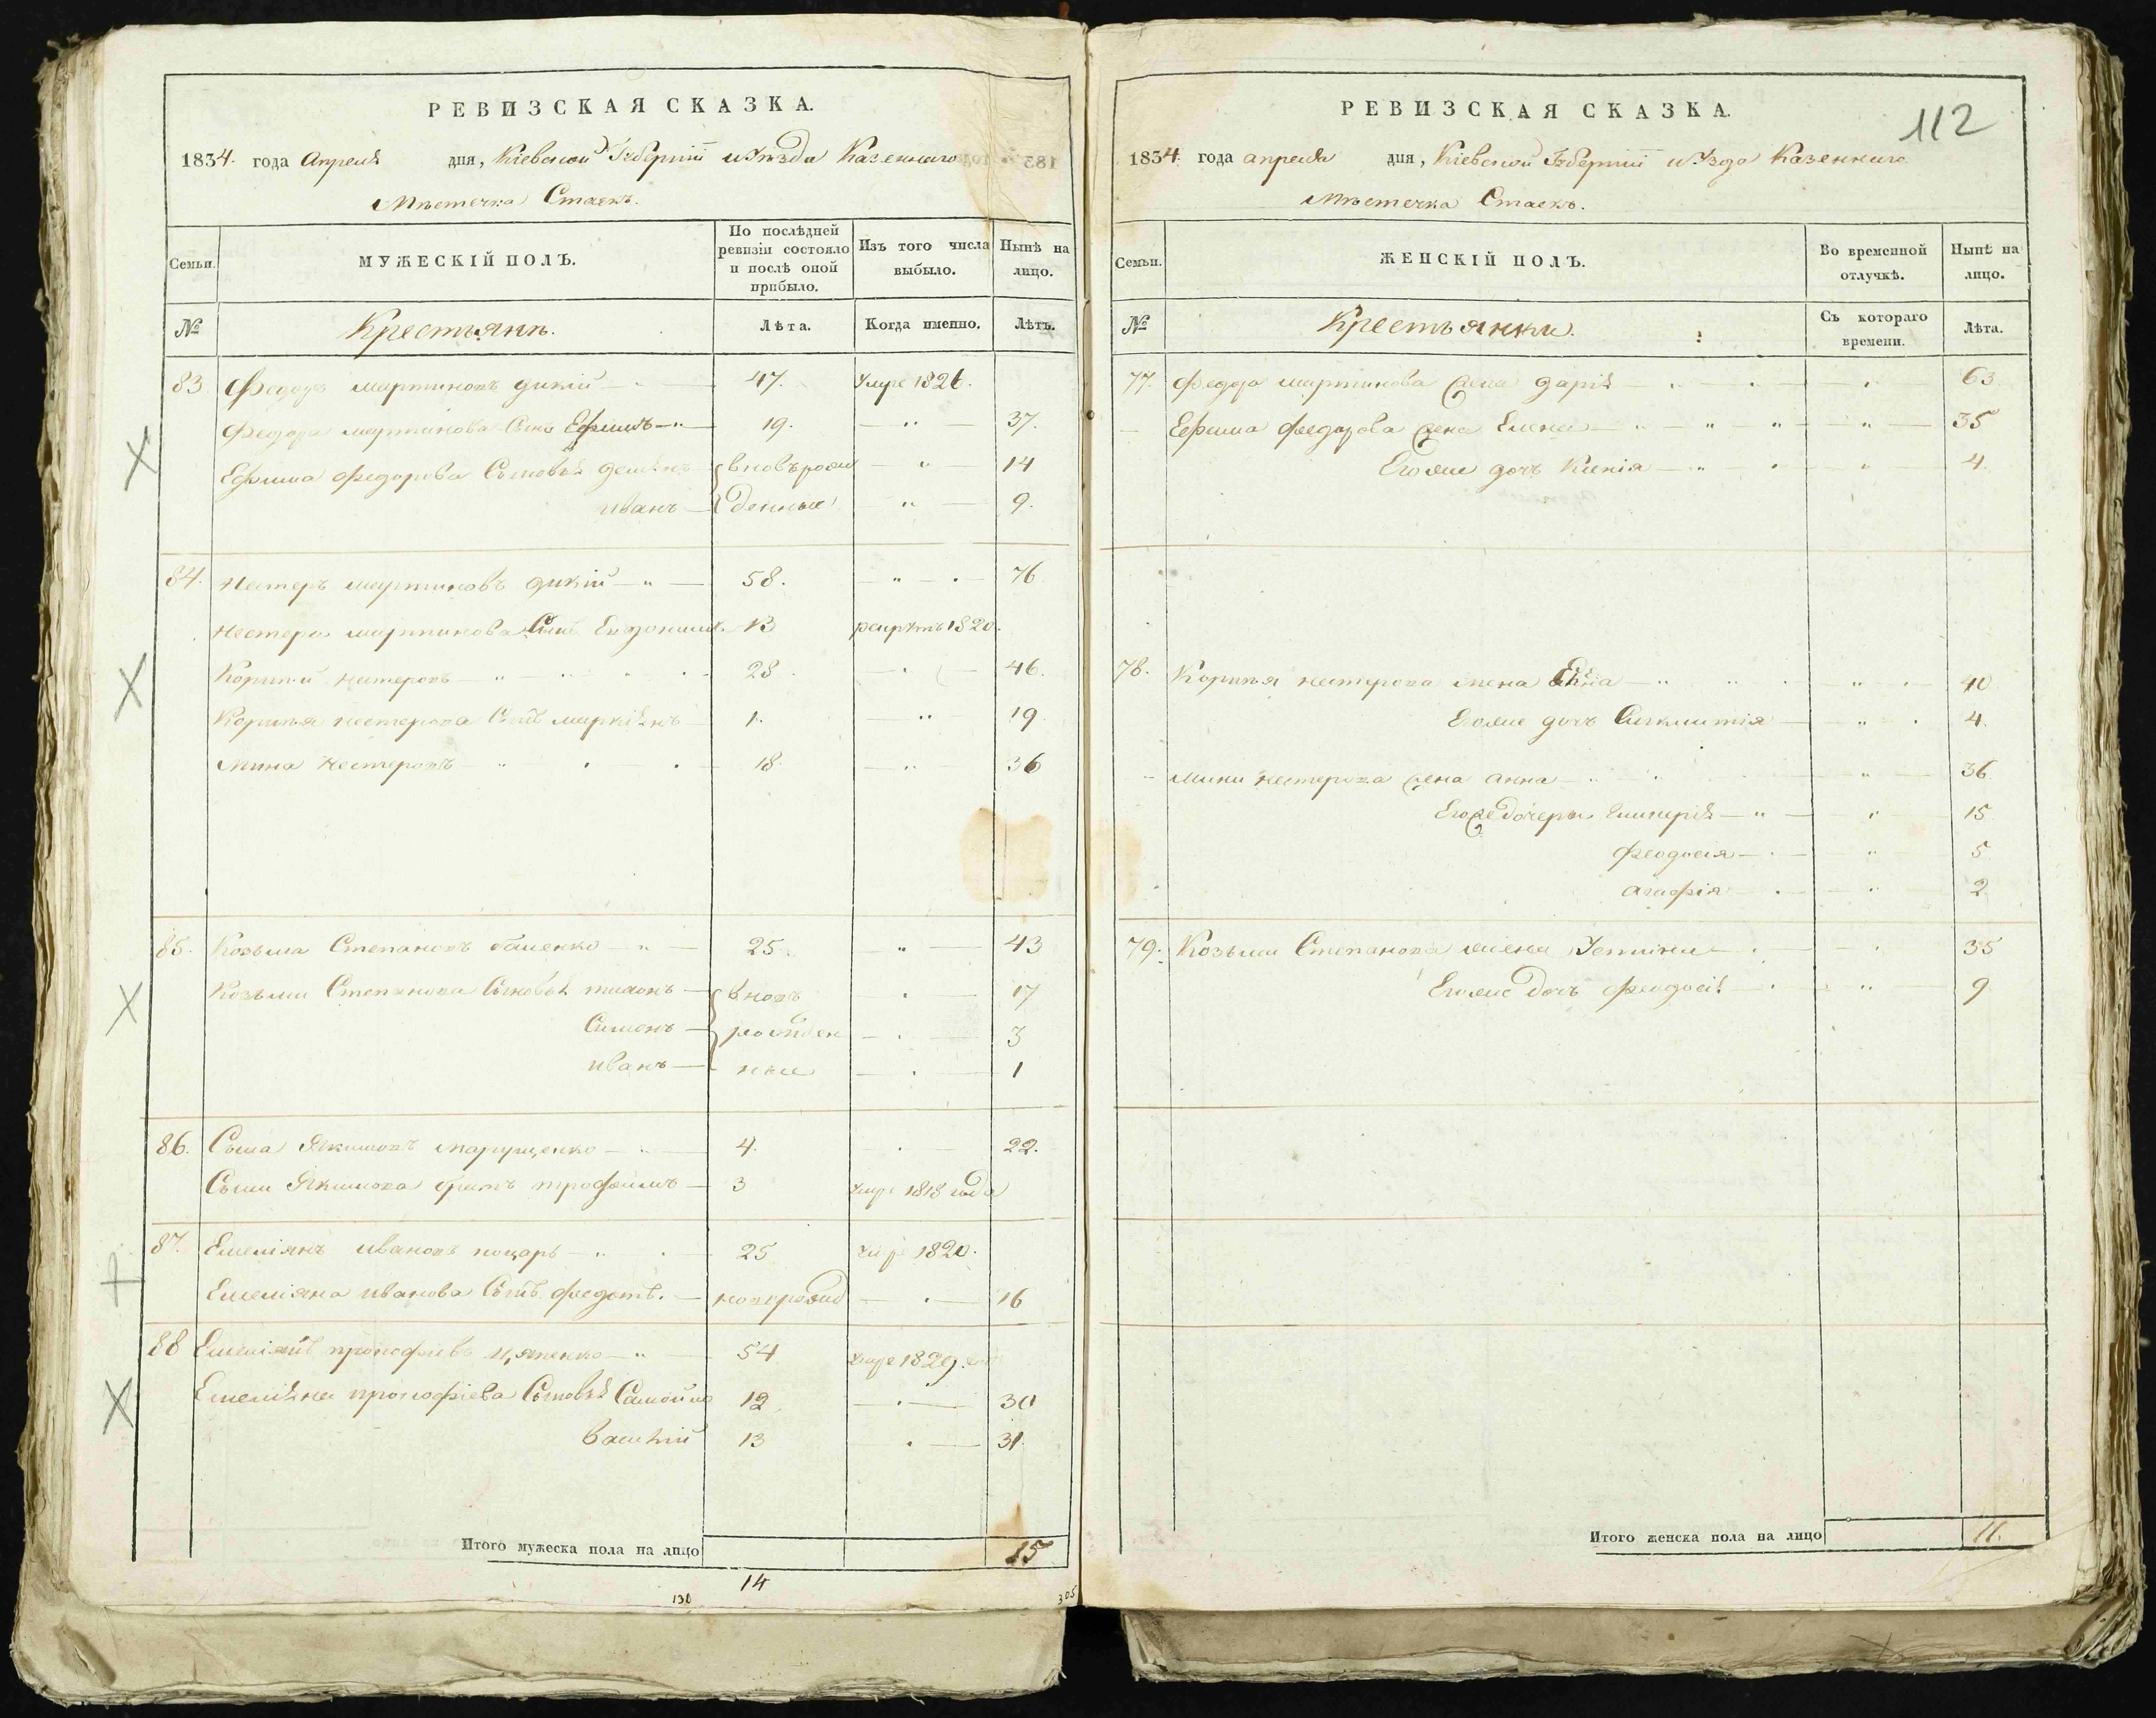 РЕВИЗСКАЯ СКАЗКА.
1834. года Апреля дня, Кіевской Губерніи и Уѣзда Казеннаго
Мѣстечка Стаекъ.
Семьи.
МУЖЕСКІЙ ПОЛЪ.
По послѣдней ревизіи состояло и послѣ оной прибыло.
Изъ того числа выбыло.
Нынѣ на лицо.
№
Крестьянъ.
Лѣта.
Когда именно.
Лѣтъ.
83 Федоръ мартиновъ дикій 47. умре 1826.
Федора мартинова Сынъ Ефимъ 19. 37.
Ефима федорова Сыновья вновърож 14
иванъ денные 9.
84. нестеръ мартиновъ дикій 58. 76
нестера мартинова Сынъ 13 рекрутъ 1820.
Корнѣй нестеровъ 28. 46.
Корнѣя нестерова Сынъ маркіянъ 1. 19
Мина Нестеровъ 18. 36
85. Козьма Степановъ 25. 43
Козьми Степанова Сыновья тихонъ вновь 17
Симонъ рожден 3
иванъ ные 1
86. Якимовъ марущенко 4. 22.
Якимова братъ трофимъ 3 умре 1818 года
87. Емеліянъ ивановъ 25 умре 1820.
Емеліяна иванова Сынъ федотъ. новорожд 16
88 Емеліянъ прокофіевъ 54 умре 1829.
Емеліяна прокофіева Сыновья Самойло 12 30
василій 13 31.
Итого мужеска пола на лицо 15
14
130
305
112
РЕВИЗСКАЯ СКАЗКА.
1834. года апреля дня, Кіевской Губерніи и Уѣзда Казеннаго
Мѣстечка Стаекъ.
Семьи.
ЖЕНСКІЙ ПОЛЪ.
Во временной отлучкѣ.
Нынѣ на лицо.
№
Крестьянки.
Съ котораго времени.
Лѣта.
77. федора мартинова жена дарія 63
Ефима федорова жена Елена 35
Егоже дочъ Ксенія 4.
78. Корнѣя нестерова жена 40
Егоже дочъ Сигклитія 4.
мини нестерова жена анна 36.
Егоже дочери 15
феодосія 5
агафія 2
79. Козьми Степанова жена Устинія 35
Егоже дочъ феодосія 9
Итого женска пола на лицо 11.